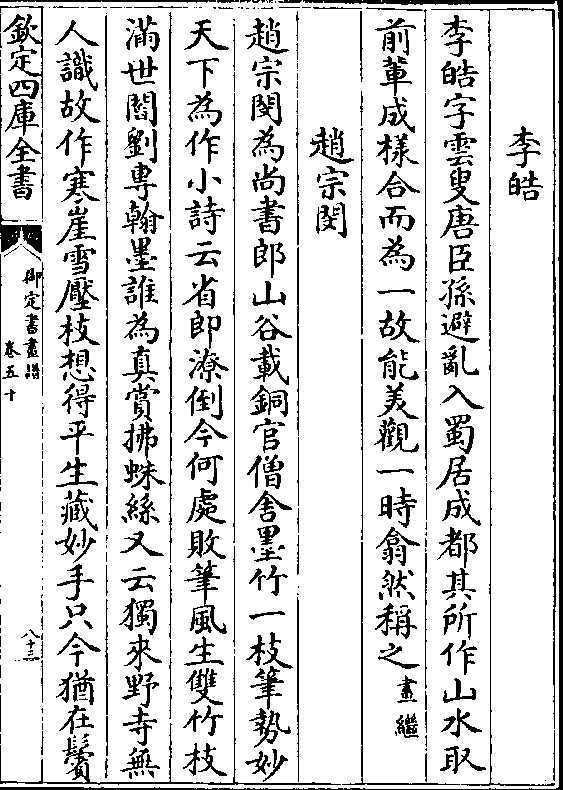 李皓
李皓字雲叟唐臣孫避亂入蜀居成都其所作山水取
前軰成樣合而為一故能美觀一時翕然稱之畫繼
趙宗閔
趙宗閔為尚書郎山谷載銅官僧舍墨竹一枝筆勢妙
天下為作小詩云省郎潦倒今何處敗筆風生雙竹枝
滿世閻劉專翰墨誰為真賞拂蛛絲又云獨來野寺無
人識故作寒崖雪壓枝想得平生藏妙手只今猶在鬢
欽定四庫全書
御定書畫譜
卷五十
八十三